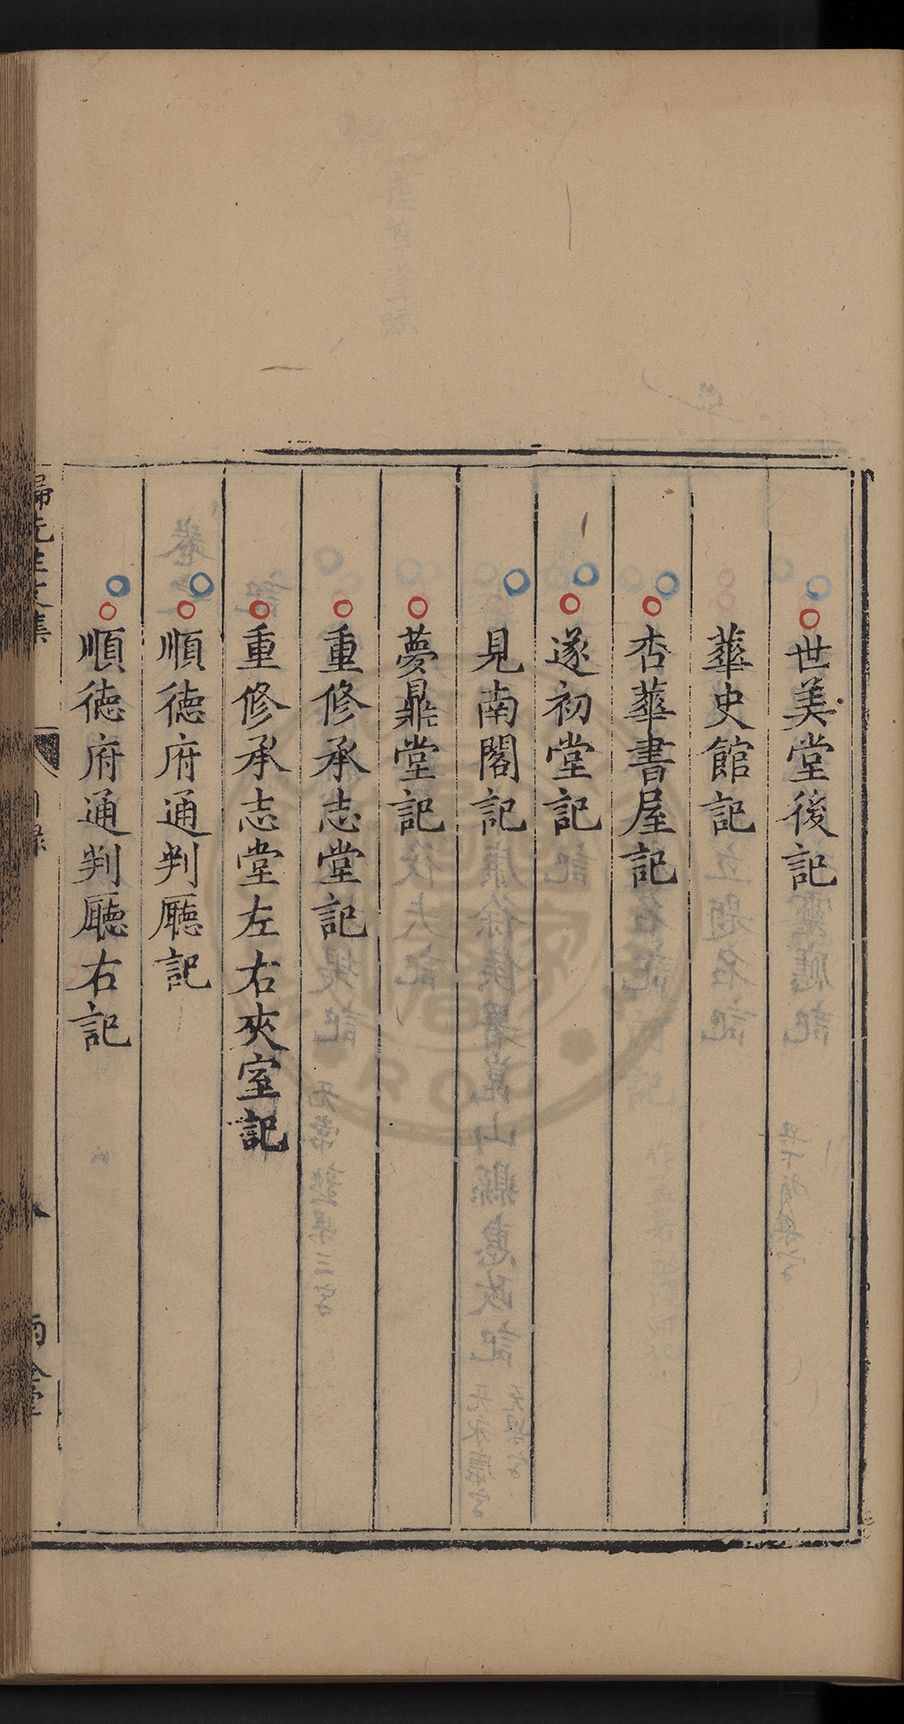 世美堂後記
蕐史館記
杏蕐書屋記
遂初堂記
見南閣記
夢鼎堂記
重修承志堂記
重修承志堂左右夾室記
順德府通判廳記
順德府通判廳右記
歸先生文集
目錄